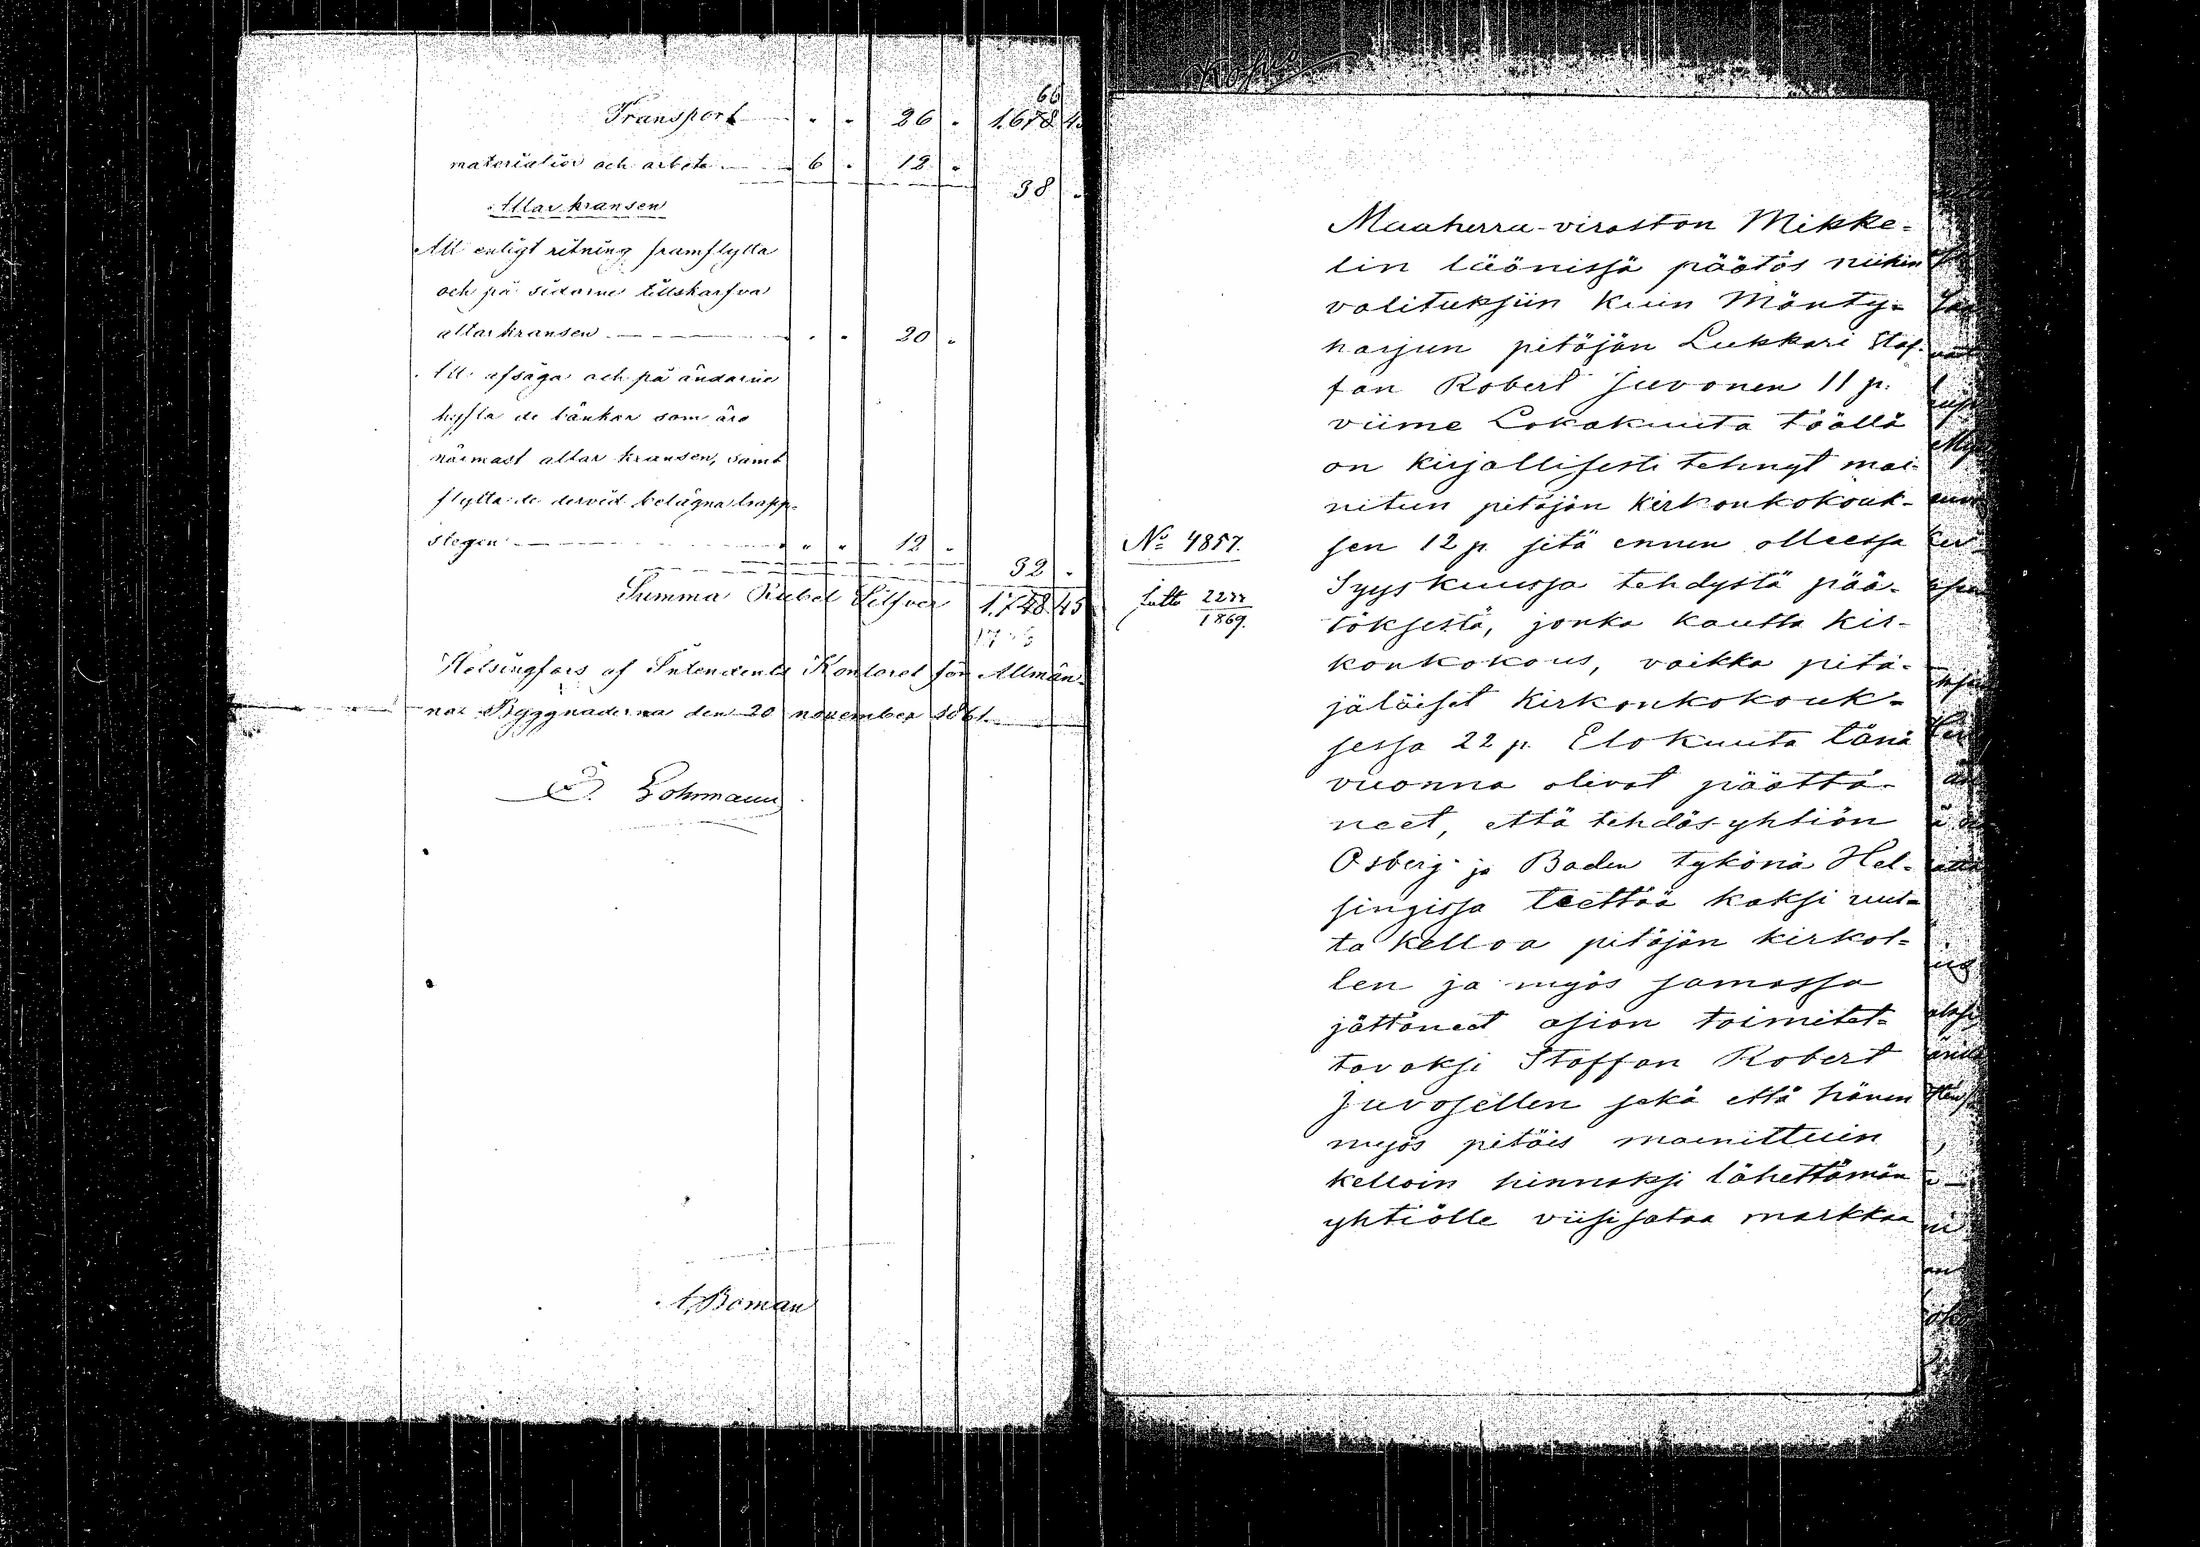 Transport " " 26 " 1,678 45
66
materialier och arbete 6 " 12 "
38 "
Altarkransen
Att enligt ritning framflytta
och på sidorne tillskarfva
altarkransen " " 20 "
Att afsåga och på ändarne
hyfla de bänkar som äro
närmast altarkransen, samt
flytta de dervid belägna trapp-
stegen " " 12 "
32 "
Summa Rubel Silfver 1,748 45
Helsingfors af Intendents Kontoret för Allmän-
na Byggnaderna den 20 november 1861.
Lohrmann
A. Boman
Maaherra-viraston Mikke-
lin läänissä päätös niihin
valituksiin kuin Mänty-
harjun pitäjän Lukkari Staf-
fan Robert Juvonen 11 p.
viime Lokakuuta täällä
on kirjallisesti tehnyt mai-
nitun pitäjän kirkonkokouk-
No 4857.
sen 12 p. sitä ennen olleessa
Syyskuussa tehdystä pää-
1869.
töksestä, jonka kautta kir-
konkokous, vaikka pitä-
jäläiset kirkonkokouk-
sessa 22 p. Elokuuta tänä
vuonna olivat päättä-
neet, että tehdäs-yhtiön
Osberg ja Baden tykönä Hel-
singissä teettää kaksi uut-
ta kelloa pitäjän kirkol-
len ja myös samassa
jättäneet asian toimitet-
tavaksi Staffan Robert
Juvosellen sekä että hänen
myös pitäis mainittuin
kelloin hinnaksi lähettämän
yhtiölle viisisataa markkaa